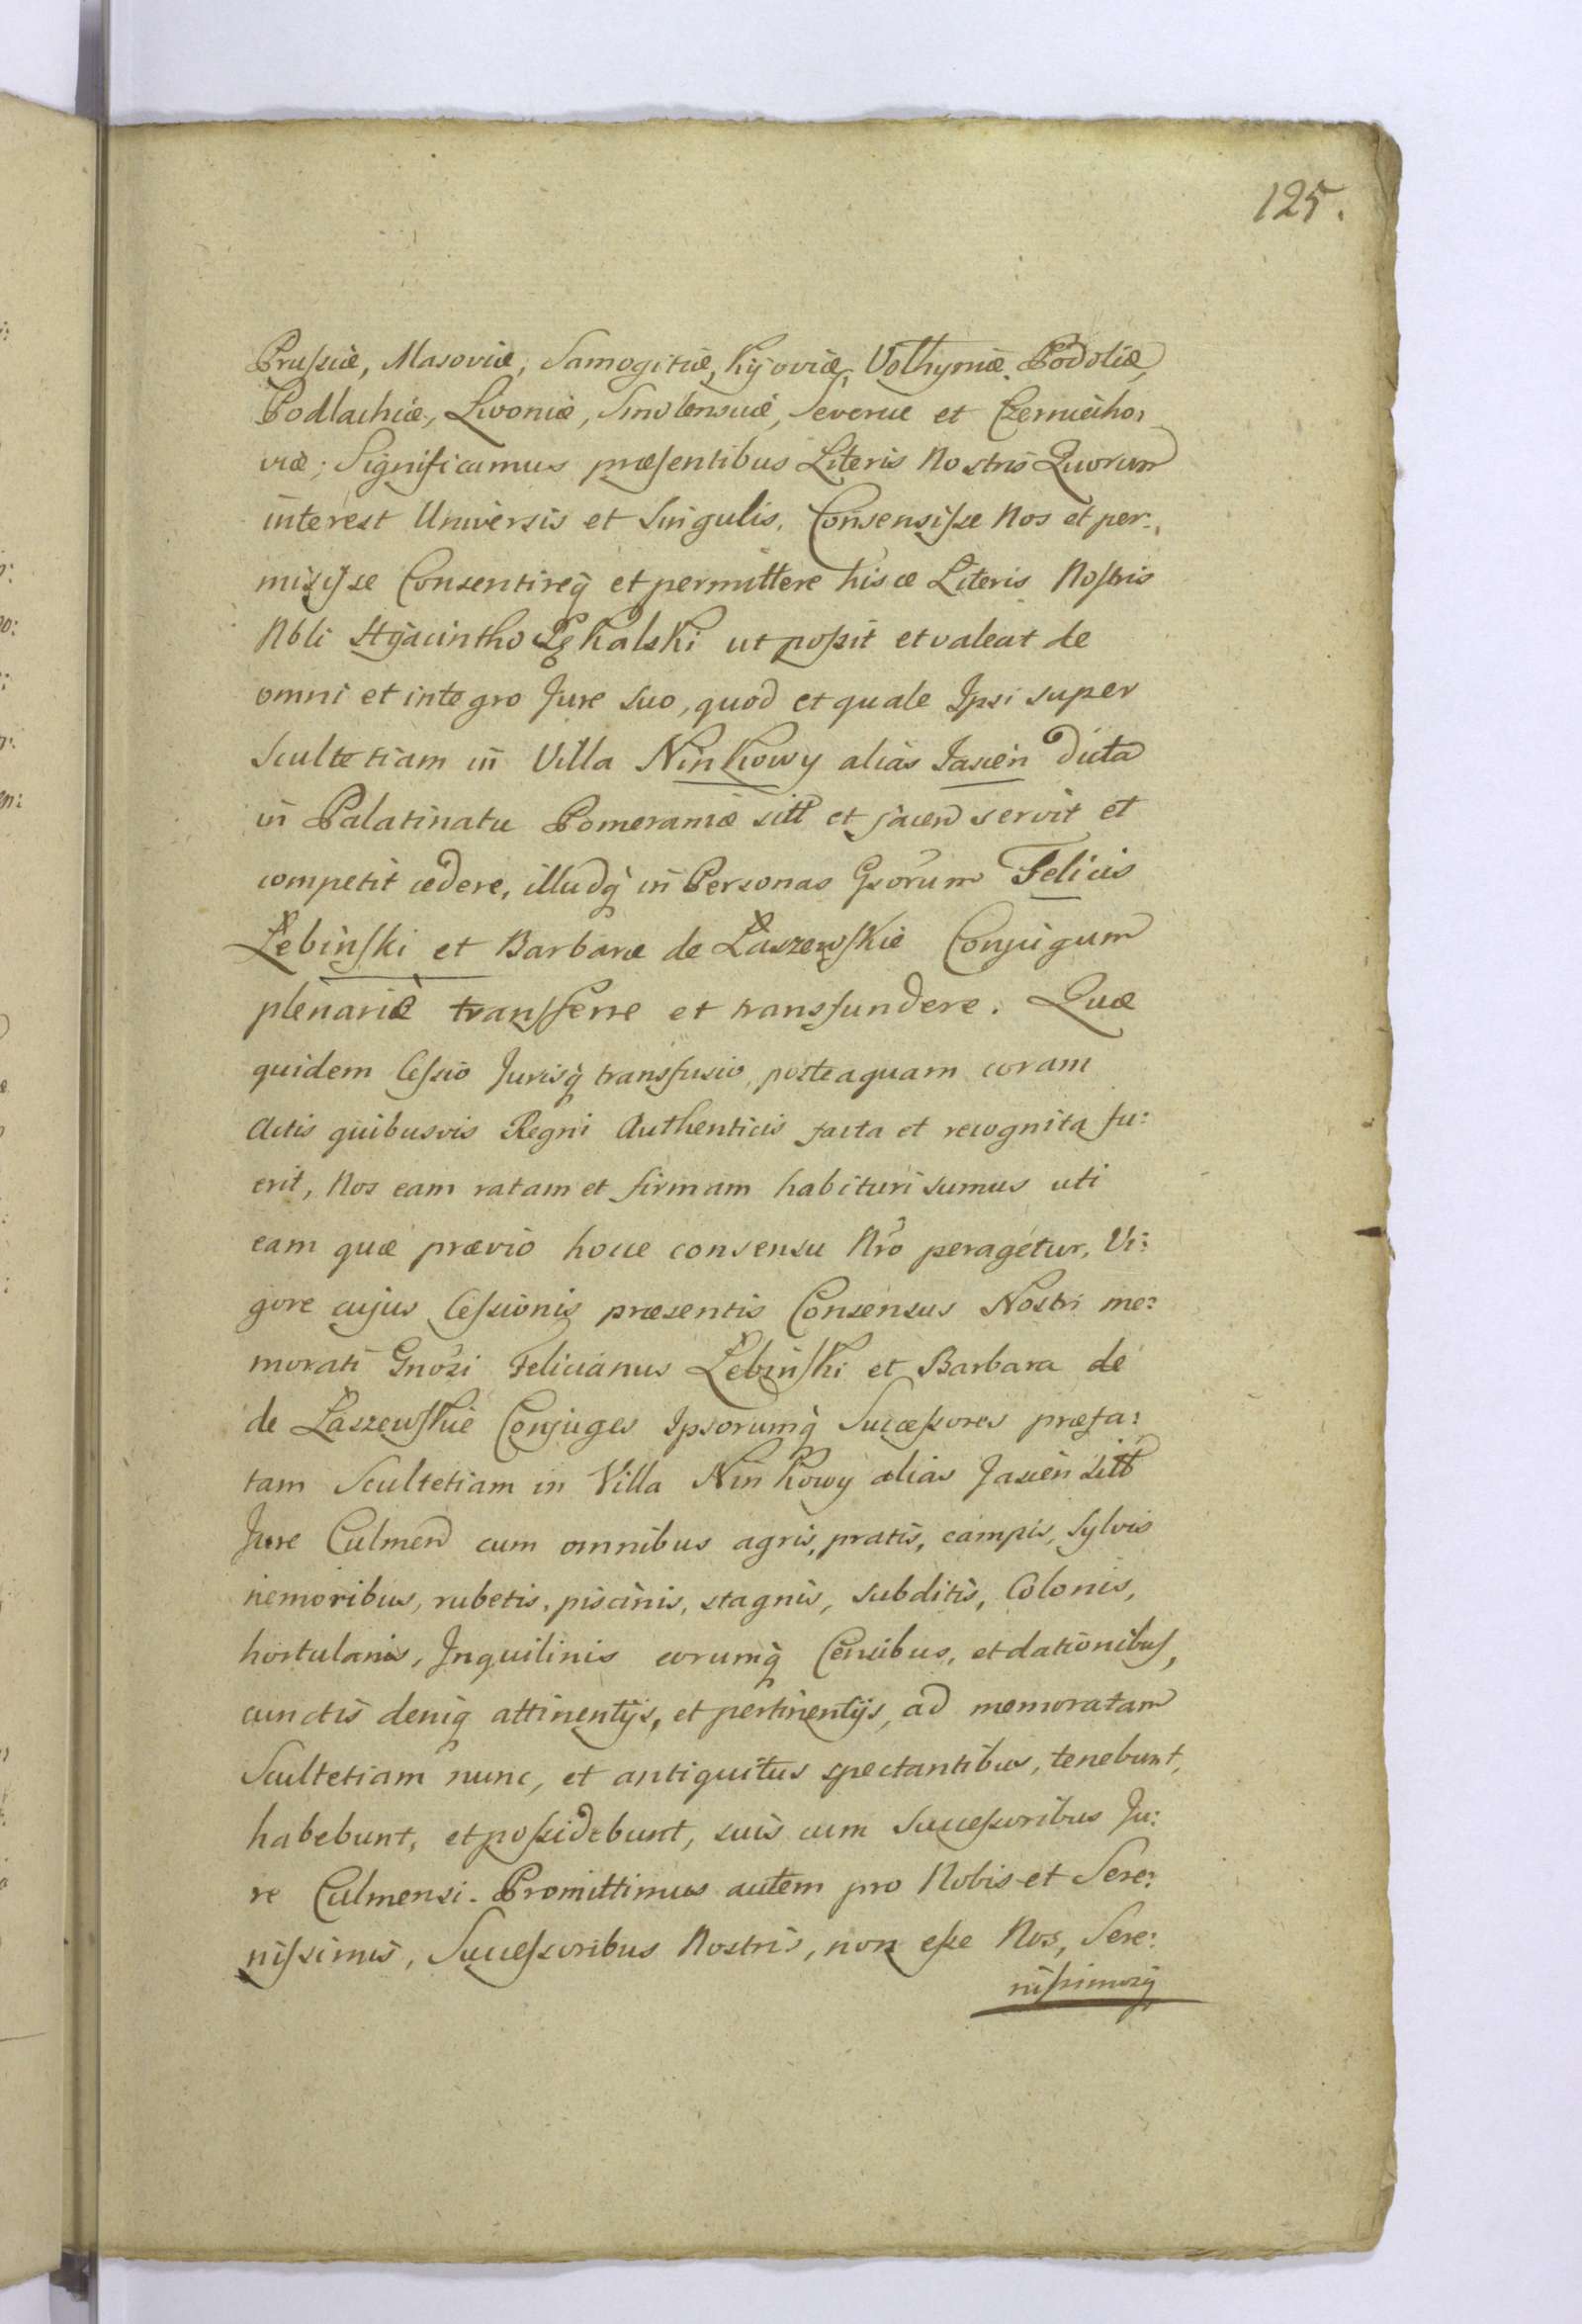 125.
Prussiæ, Masoviæ, Samogitiæ, Kijoviæ, Volhyniæ, Podoliæ,
Podlachiæ, Livoniæ, Smolensciæ, Severiæ et Czerniecho,
viæ; Significamus præsentibus Literis Nostris Quorum
interest Universis et Singulis, Consensisse Nos et per:,
misisse Consentireq̃ et permittere hisce Literis Nostris
Nbli Hyacintho Pękalski ut possit et valeat de
omni et integro Jure suo, quod et quale Ipsi super
Scultetiam in Villa Ninkowy alias Jasien dicta
in Palatinatu Pomeraniæ sitt et jacen servit et
competit cedere, illudq̃ in Personas Gsorum Felicis
Łebinski et Barbaræ de Łaszewskie Conjugum
plenariè transferre et transfundere. Quæ
quidem Cessio Jurisq̃ transfusio, posteaquam coram
Actis quibusvis Regni Authenticis facta et recognita fu:
erit, Nos eam ratam et firmam habituri sumus uti
eam quæ prævio hocce consensu Nro peragetur, Vi:
gore cujus Cessionis præsentis Consensus Nostri me:
morati Gnosi Felicianus Łebinski et Barbara de
de Łaszewskie Conjuges Ipsorumq̃ Successores præfa:
tam Scultetiam in Villa Ninkowy alias Jasien sitt
Jure Culmen cum omnibus agris, pratis, campis, sylvis
nemoribus, rubetis, piscinis, stagnis, subditis, Colonis,
hortulanis, Inquilinis eorumq̃ Censibus, et dationibus,
cunctis deniq̃ attinentijs, et pertinentijs, ad memoratam
Scultetiam nunc, et antiquitus spectantibus, tenebunt,
habebunt, et possidebunt, suis cum Successoribus Ju:
re Culmensi. Promittimus autem pro Nobis et Sere:
nissimis, Successoribus Nostris, non esse Nos, Sere:
nissimosq̃